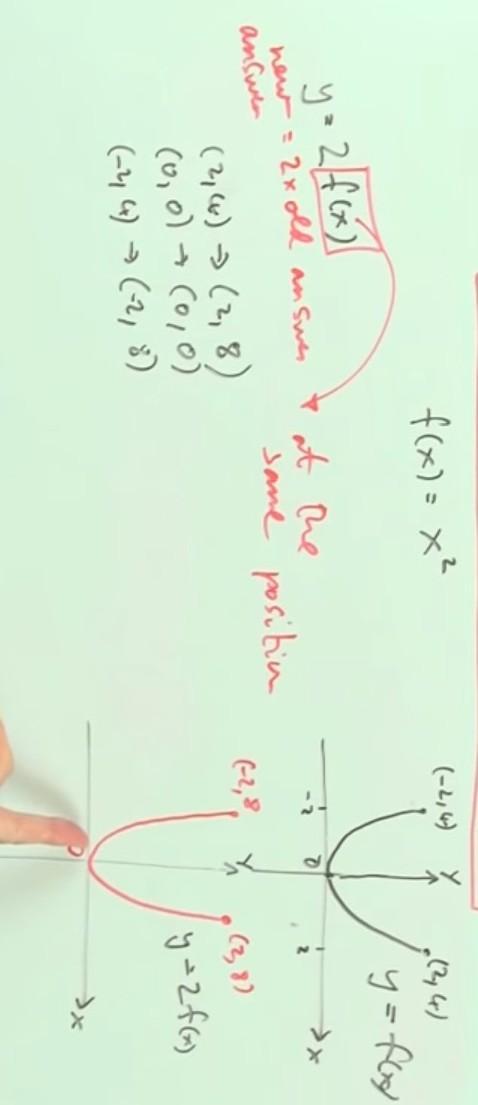 f(x) = x²
y = 2 f(x)
new = 2x old answer at the
answer
same position
(2,4) → (2, 8)
(0,0) → (0,0)
(-2,4) → (-2, 8)
(-2,4)
y
(2,4)
y = f(x)
-2
0
2
x
(-2,8
y
(2,8)
y = 2f(x)
0
x